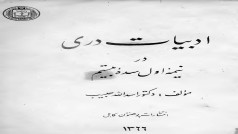 ادبیات دری
در
نیمهٔ اول سدهٔ بیستم
مؤلف: دکتور اسدالله حبیب
پوهنتون کابل
۱۳۶۶